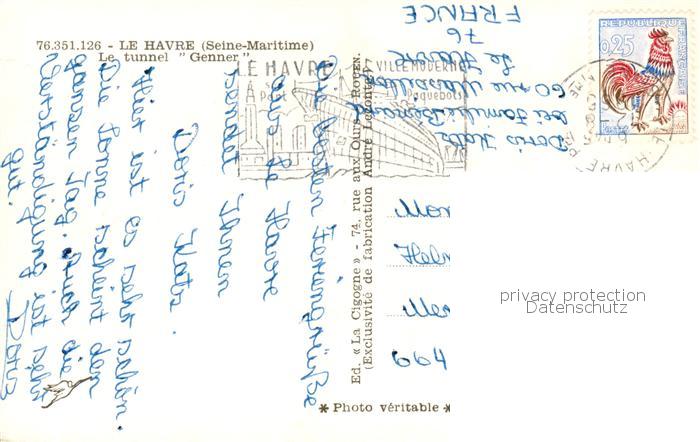 76.351.126 - LE HAVRE (Seine-Maritime)
Le tunnel "Genner"
Die besten Feriengrüße
aus Le Havre
sendet Ihnen
Doris Katz.
Hier ist es sehr schön.
Die Sonne scheint den
ganzen Tag. Auch die
Verständigung ist sehr
gut.
Doris
LE HAVRE
VILLE MODERNE
Port
Paquebots
Ed. «La Cigogne» - 74, rue aux Ours - ROUEN.
(Exclusivité de fabrication André Leconte)
Doris Katz
bei Familie
60 rue
Le Havre
76
FRANCE
REPUBLIQUE FRANCAISE
0,25
Postes
LE HAVRE
Hel
664
privacy protection
Datenschutz
* Photo véritable *